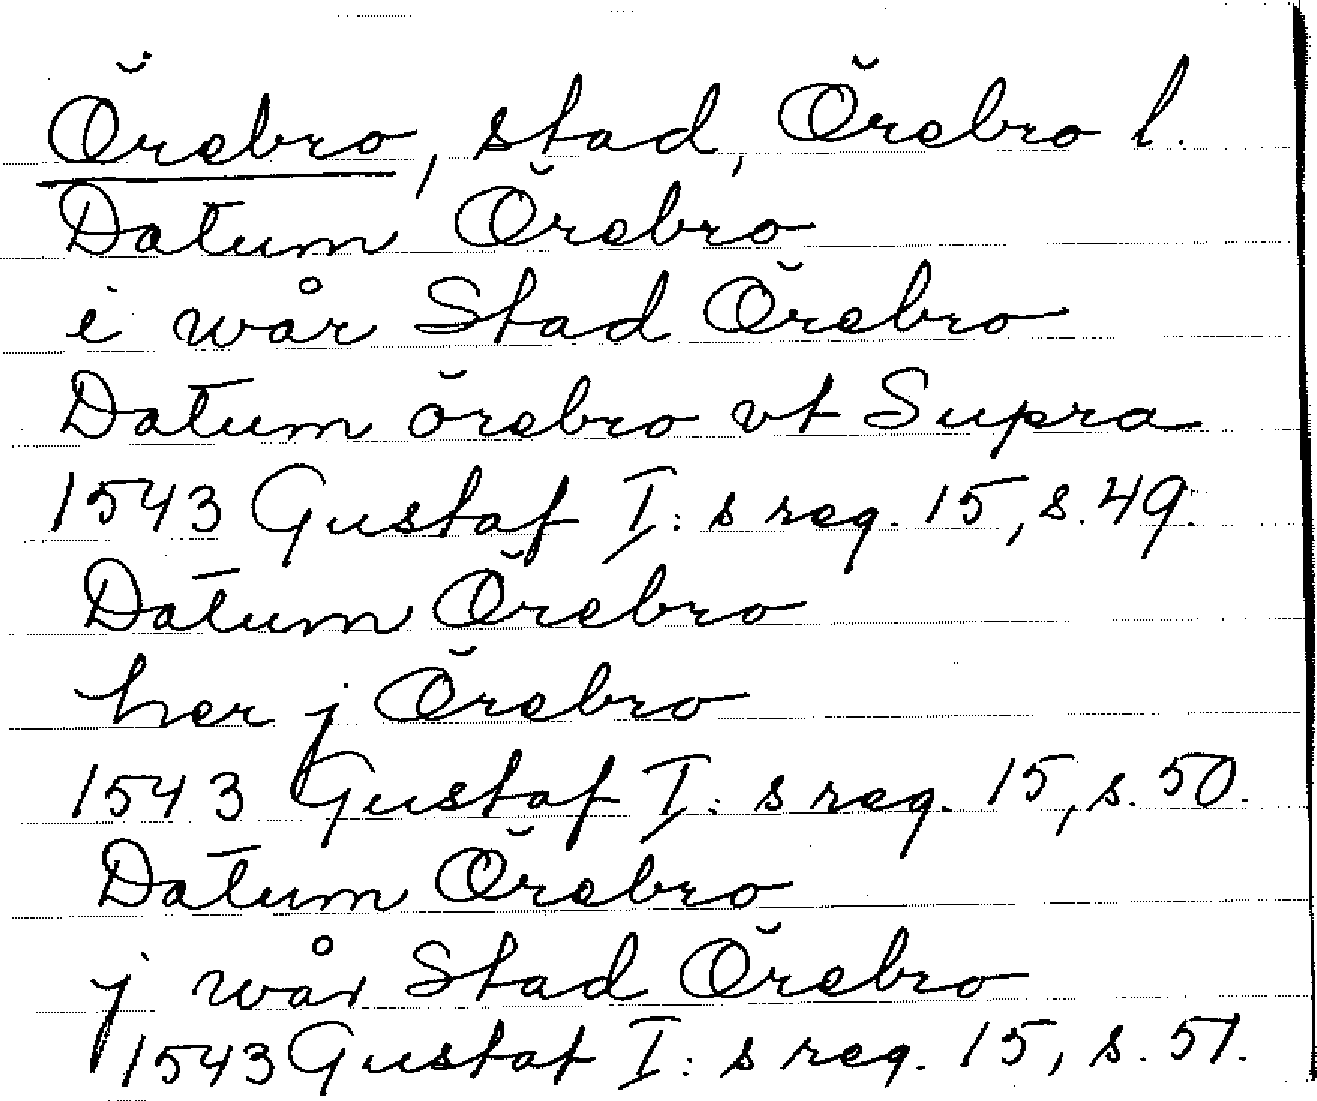 Örebro, stad, Örebro l.
Datum Örebro
i wår Stad Örebro
Datum örebro vt Supra
1543 Gustaf I:s reg. 15, s. 49.
Datum Örebro
her j Örebro
1543 Gustaf I:s reg. 15, s. 50.
Datum Örebro
j wår Stad Örebro
1543 Gustaf I:s reg. 15, s. 51.